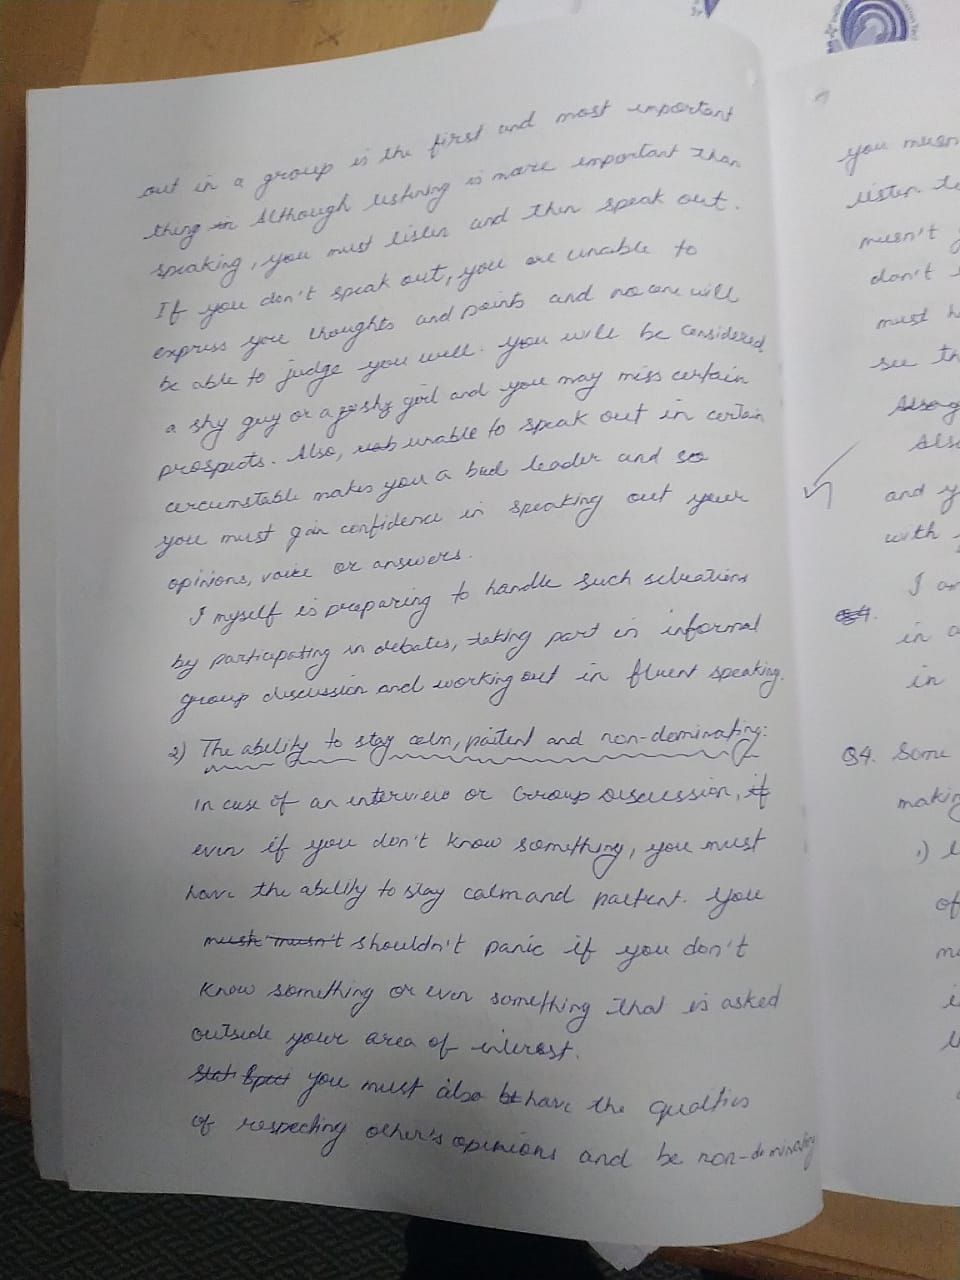 out in a group is the first and most important
thing in Although listining is more important than
speaking, you must listen and then speak out.
If you don't speak out, you are unable to
express you thoughts and points and no one will
be able to judge you well. You will be considered
a shy guy or a shy girl and you may miss certain
prospects. Also, unable to speak out in certain
circumstable makes you a bad leader and so
you must gain confidence in speaking out your
opinions, voice or answers.
I myself is preparing to handle such situations
by participating in debates, taking part in informal
group discussion and working out in fluent speaking.
2) The ability to stay calm, paitent and non-dominating:
In case of an interview or Group Discussion, if
even if you don't know something, you must
have the ability to stay calm and paitent. You
mustn't shouldn't panic if you don't
know something or even something that is asked
outside your area of interest.
you must also have the qualties
of respecting other's opinions and be non-dominating
you musn
listen to
musn't
don't
must h
see th
Also
and y
with
I am
in a
in
Q4. Some
making
1) l
of